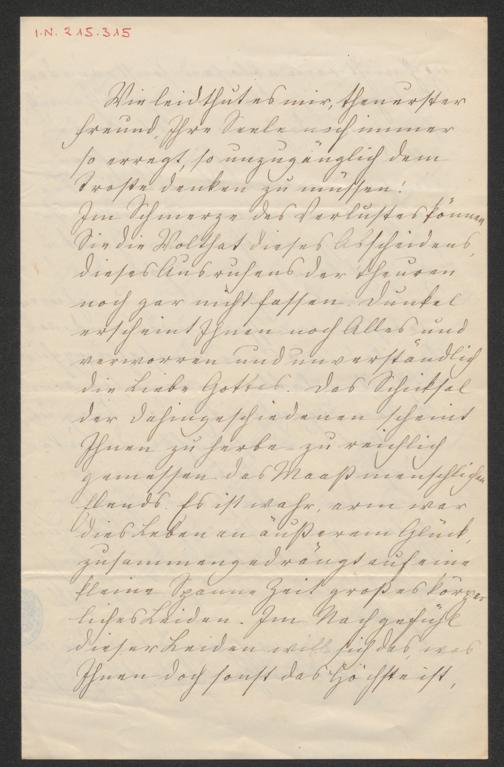 I.N. 215.315
Wie leid thut es mir, theuerster
Freund, Ihre Seele noch immer
so erregt, so unzugänglich dem
Troste denken zu müssen!
Im Schmerze des Verlustes können
Sie die Wolthat dieses Abscheidens,
dieses Ausruhens der theuren
noch gar nicht fassen. Dunkel
erscheint Ihnen noch Alles und
verworren und unverständlich
die Liebe Gottes. Das Schicksal
der dahingeschiedenen scheint
Ihnen zu herbe zu reichlich
gemessen das Maaß menschlichen
Elends. Es ist wahr, arm war
dies Leben an äußerem Glück,
zusammengedrängt auf eine
kleine Spanne Zeit großes körper
liches Leiden. Im Nachgefühl
dieser Leiden will sich das, was
Ihnen doch sonst das Höchste ist,